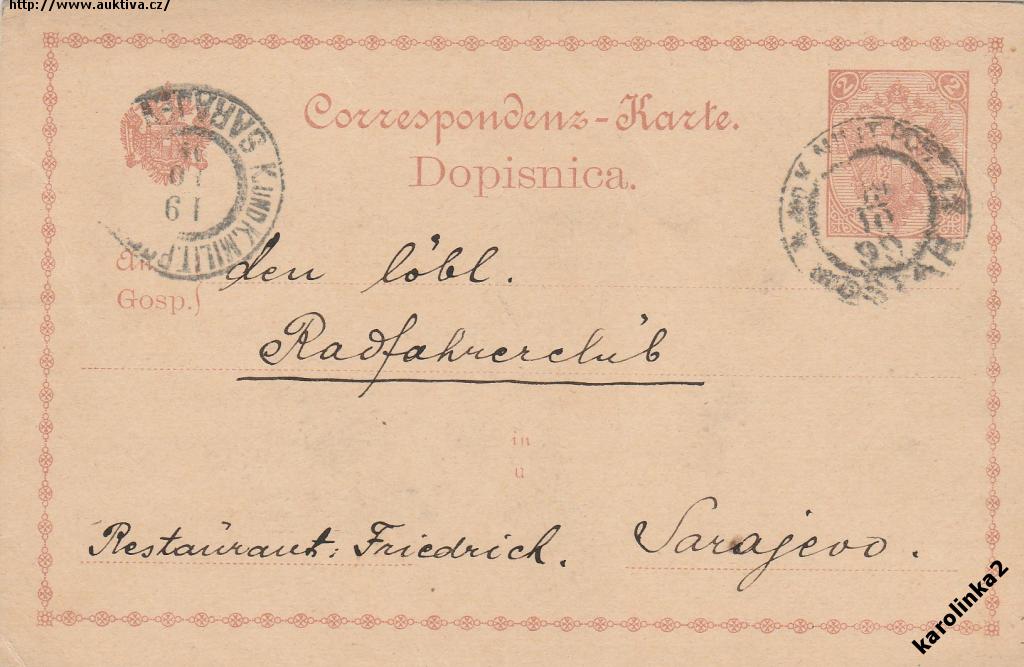 http://www.auktiva.cz/
2 2
Correspondenz-Karte.
Dopisnica.
K.UND K.MILIT.P
SARAJEV
19
10
MILIT.POST
MOSTAR
An
Gosp.
den löbl.
Radfahrerclub
in
u
Restaurant: Friedrich. Sarajevo.
karolinka2